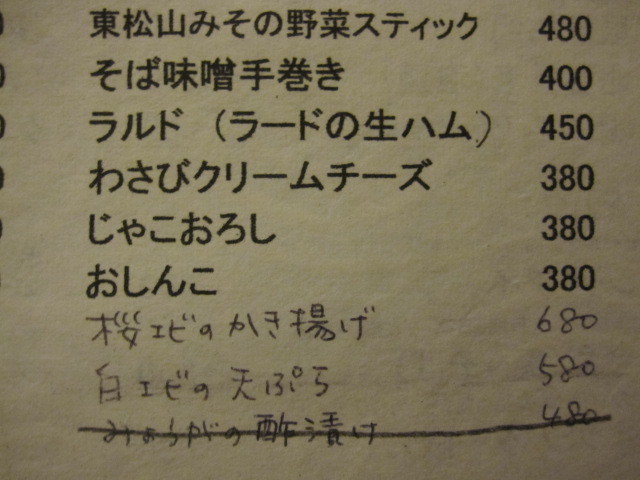 東松山みその野菜スティック 480
そば味噌手巻き 400
ラルド（ラードの生ハム） 450
わさびクリームチーズ 380
じゃこおろし 380
おしんこ 380
桜エビのかき揚げ 680
白エビの天ぷら 580
みょうがの酢漬け 480